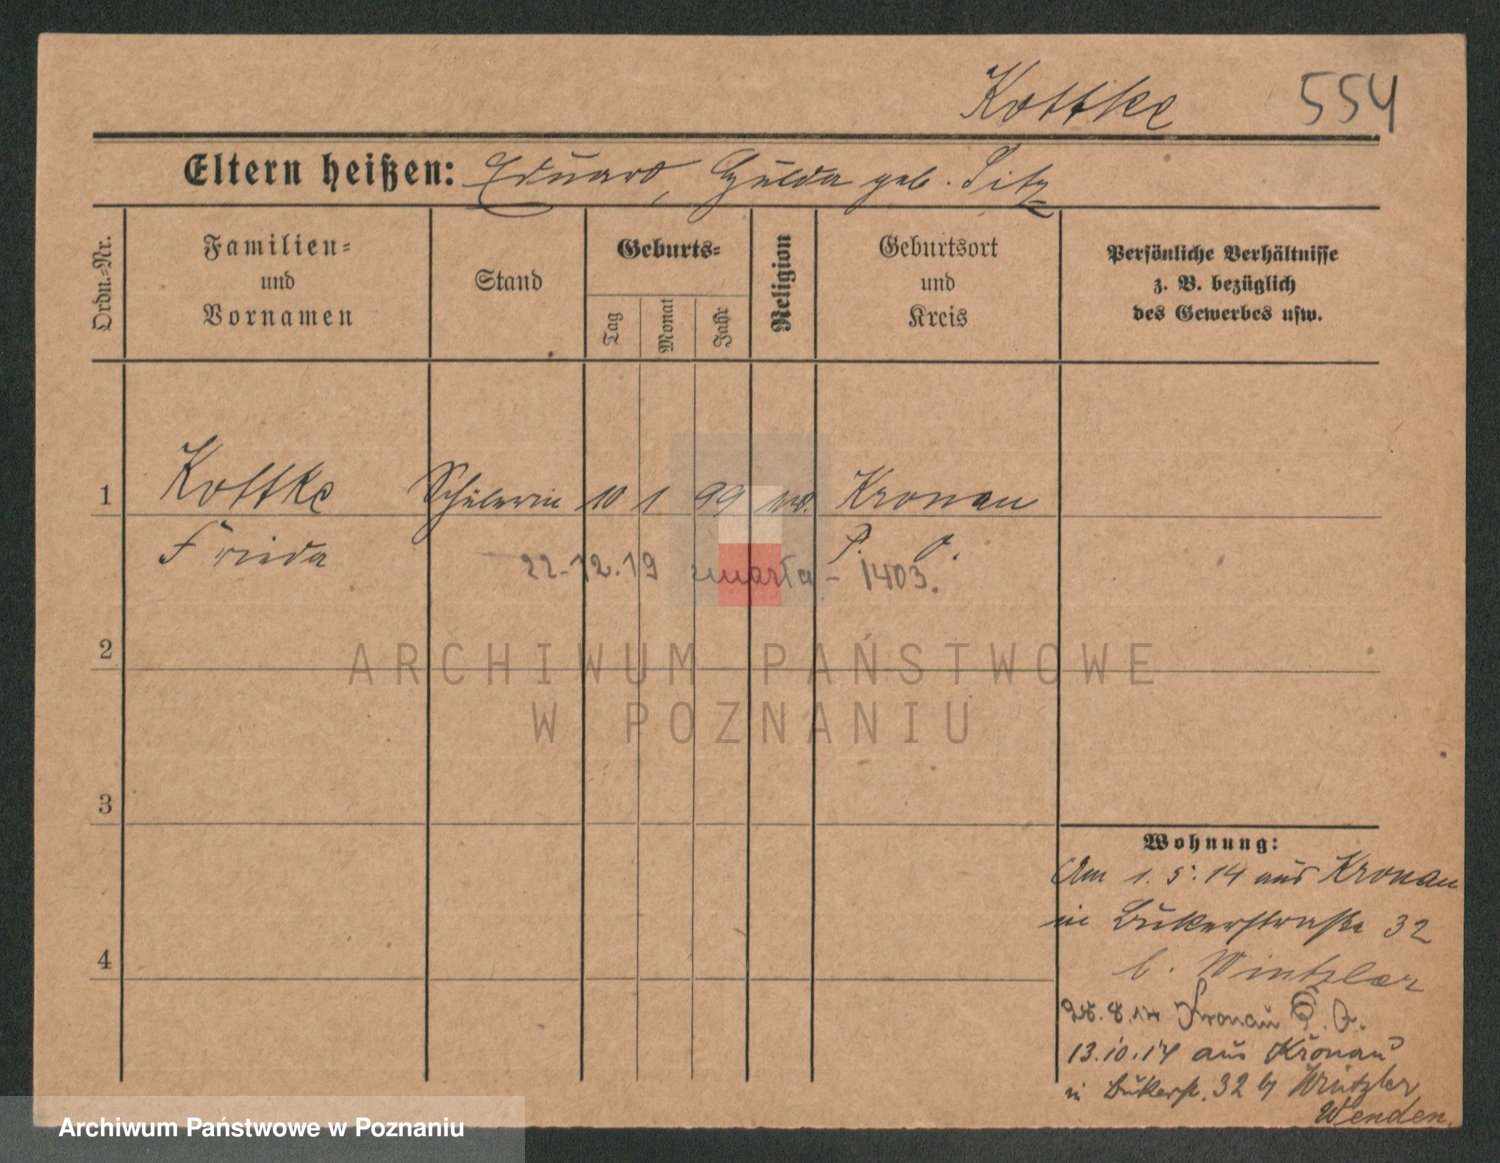 Kottke 554
Eltern heißen: Eduard, Hulda geb. Titz
Ordn.-Nr.
Familien-
und
Vornamen
Stand
Geburts-
Tag
Monat
Jahr
Religion
Geburtsort
und
Kreis
Persönliche Verhältnisse
z. B. bezüglich
des Gewerbes usw.
1 Kottke Schülerin 10 1 99 Kronau
Frieda P. O.
22-12.19 umarła - 1403.
2
ARCHIWUM PAŃSTWOWE
W POZNANIU
3
Wohnung:
Am 1.5.14 aus Kronau
in Bukerstraße 32
4
b. Wintzler
28.8.14 Kronau P. O.
13.10.14 aus Kronau
in Bukerstr. 32 b/
Wenden.
Archiwum Państwowe w Poznaniu